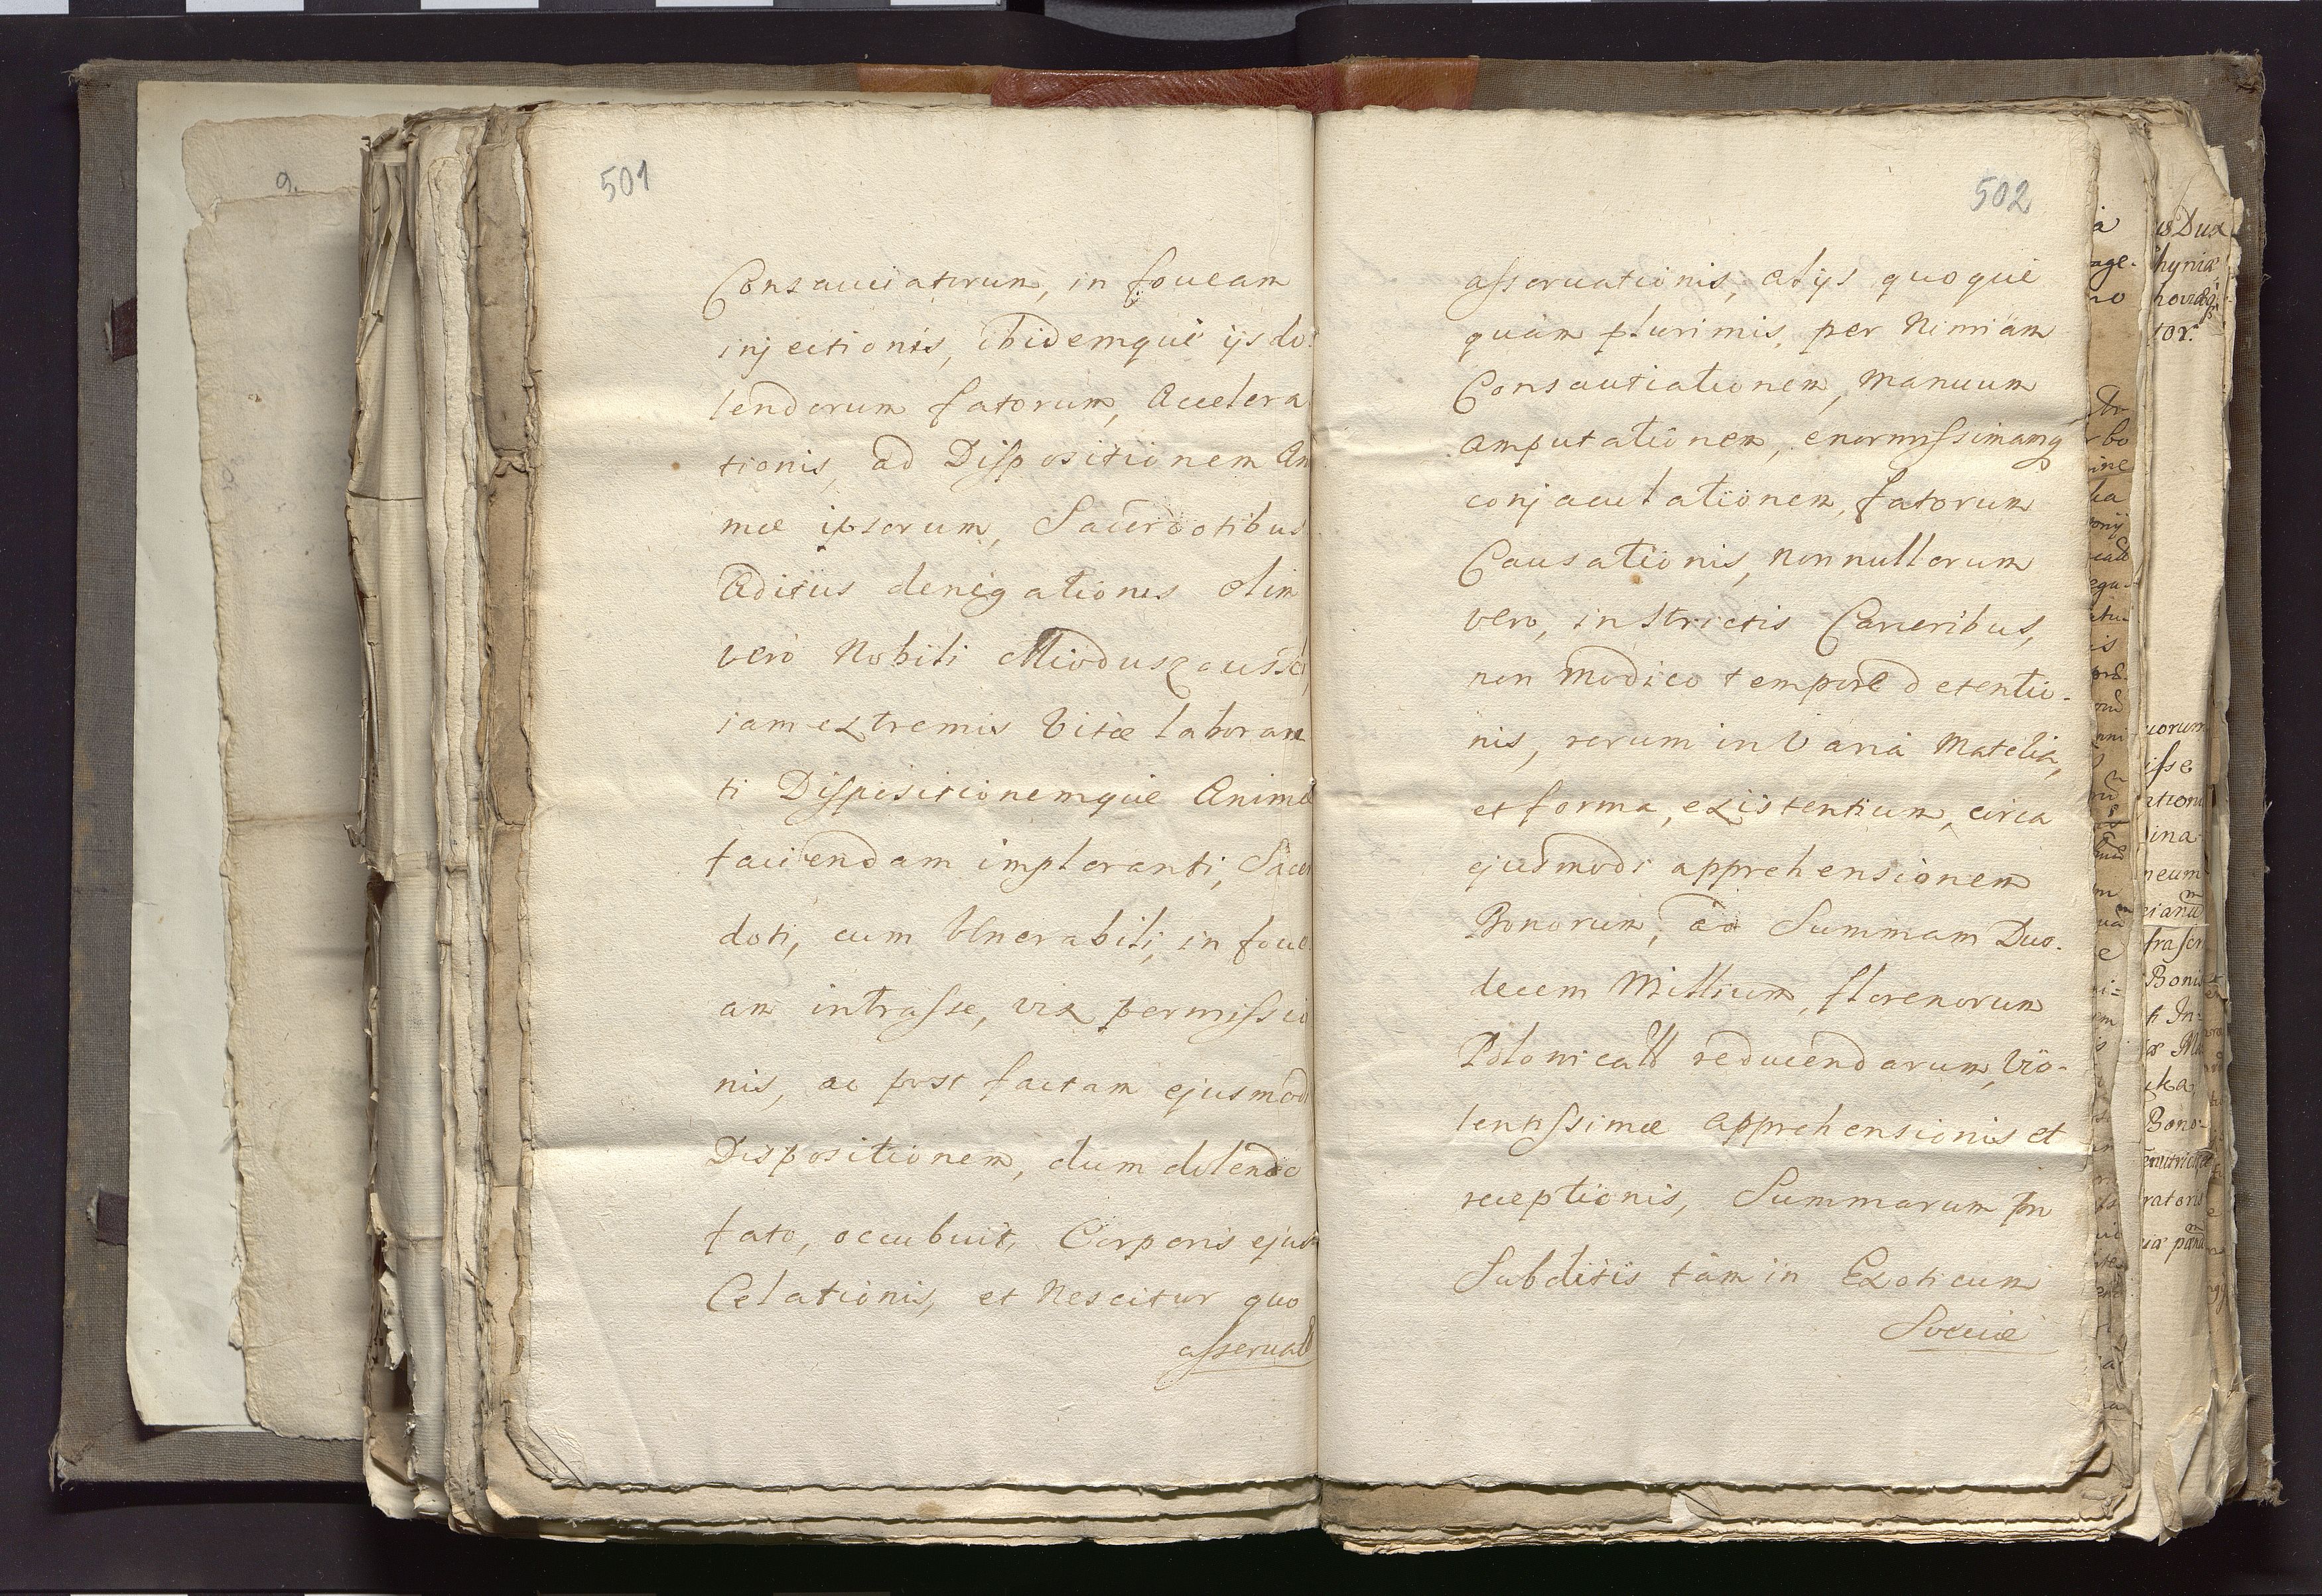 501
Consauciatorum, in foueam
injectionis, ibidemque ijs do:
lendorum fatorum, accelera
tionis, ad Dispositionem An
mæ ipsorum, Sacerdotibus
Aditus denegationis olim
vero Nobili Mioduszewski,
iam extremis Vitæ laboran
ti Dispositionemque Animæ
faciendam imploranti, Sacer
doti, cum Venerabili, in foue
am intrasse, vix permissio
nis, ac post factam ejusmodi
Dispositionem, dum dolendo
fato, occubuit, Corporis ejus
Celationis, et Nescitur quo
asseruat
502
asseruationis, alijs quoque
quam plurimis, per Nimiam
Consautiationem, manuum
amputationem, enormissimamq
conjaculationem, fatorum
Causationis, nonnullorum
vero, in Strictis Carceribus,
non modico tempore detentio-
nis, rerum in Varia Materia,
et forma, existentium, circa
ejusmodi apprehensionem
Bonorum, ad Summam Duo-
decem Millium, florenorum
Polonicall reducendarum, Vio-
lentissimæ apprehensionis et
receptionis, Summarum pn
Subditis tam in Exoticum
Sueciæ
9.
us Dux
hyniæ
tor.
uorum
isse
ationi
ina-
neum
Bonis
ti In-
uka
Bono-
ratoris